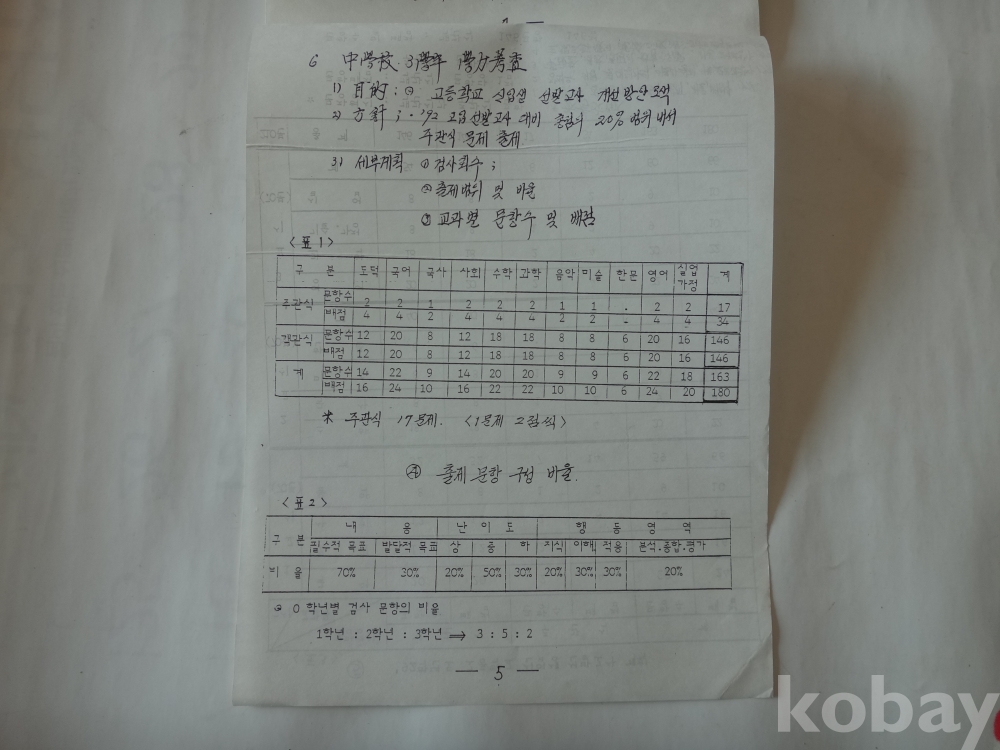 6 中學校 3學年 學力考査
1) 目的 : ⊙ 고등학교 신입생 선발고사 개선방안 모색
2) 方針 ; · '92 고입선발고사 대비 총점의 20% 범위내서
주관식 문제 출제
3) 세부계획 ① 검사회수 ;
② 출제범위 및 비율
③ 교과별 문항수 및 배점
<표 1>
구 분 도덕 국어 국사 사회 수학 과학 음악 미술 한문 영어 실업 가정 계
주관식 문항수 2 2 1 2 2 2 1 1 . 2 2 17
배점 4 4 2 4 4 4 2 2 - 4 4 34
객관식 문항수 12 20 8 12 18 18 8 8 6 20 16 146
배점 12 20 8 12 18 18 8 8 6 20 16 146
계 문항수 14 22 9 14 20 20 9 9 6 22 18 163
배점 16 24 10 16 22 22 10 10 6 24 20 180
* 주관식 17문제. <1문제 2점씩>
④ 출제 문항 구성 비율.
<표 2>
구 분 내 용 난 이 도 행 동 영 역
필수적 목표 발달적 목표 상 중 하 지식 이해 적용 분석.종합.평가
비 율 70% 30% 20% 50% 30% 20% 30% 30% 20%
0 학년별 검사 문항의 비율
1학년 : 2학년 : 3학년 ⇒ 3 : 5 : 2
— 5 —
kobay